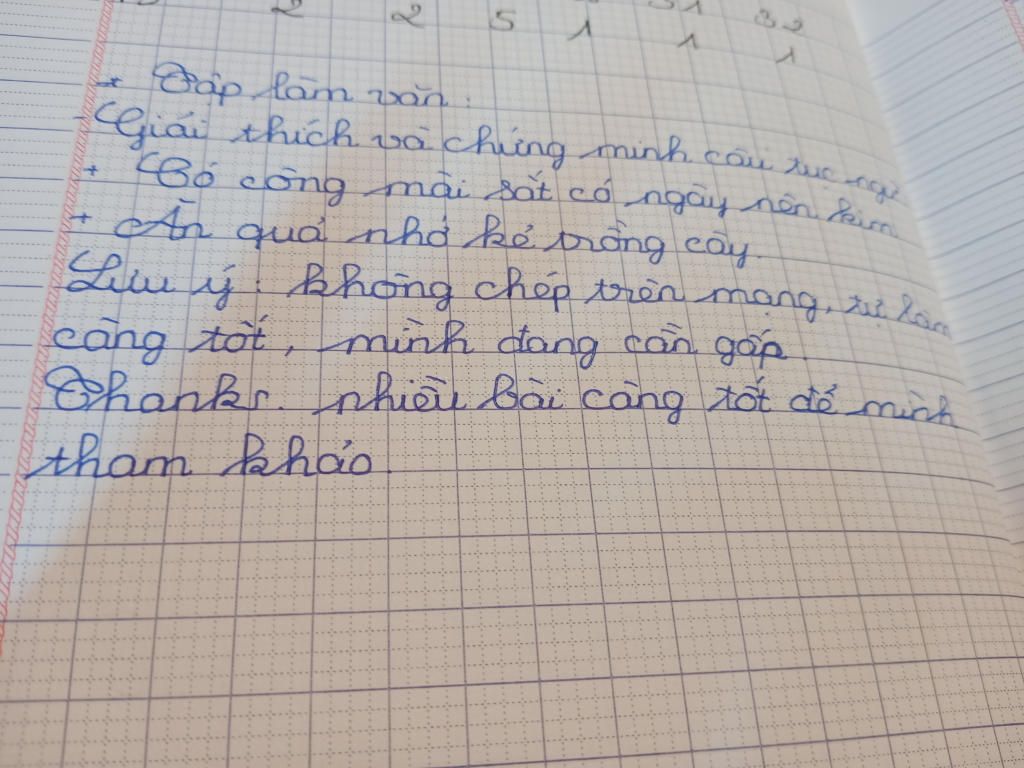 2 2 5 1 31 32
1 1
+ Tập làm văn.
- Giải thích và chứng minh câu tục ngữ
+ Có công mài sắt có ngày nên kim
+ Ăn quả nhớ kẻ trồng cây.
Lưu ý: không chép trên mạng, tự làm
càng tốt, mình đang cần gấp.
Thanks. nhiều bài càng tốt để mình
tham khảo.